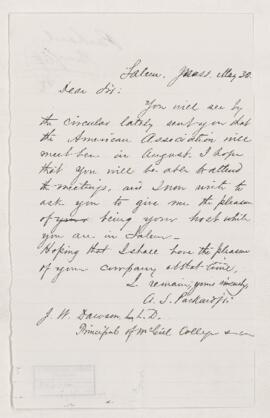 Salem, Mass. May 30.
Dear Sir:
You will see by
the circular lately sent you that
the American Association will
meet here in August. I hope
that you will be able to attend
the meetings, and I now write to
ask you to give me the pleasure
of being your host while
you are in Salem.
Hoping that I shall have the pleasure
of your company at that time,
I remain, yours sincerely,
A. S. Packard Jr.
J. W. Dawson L.L.D.
Principal of McGill College